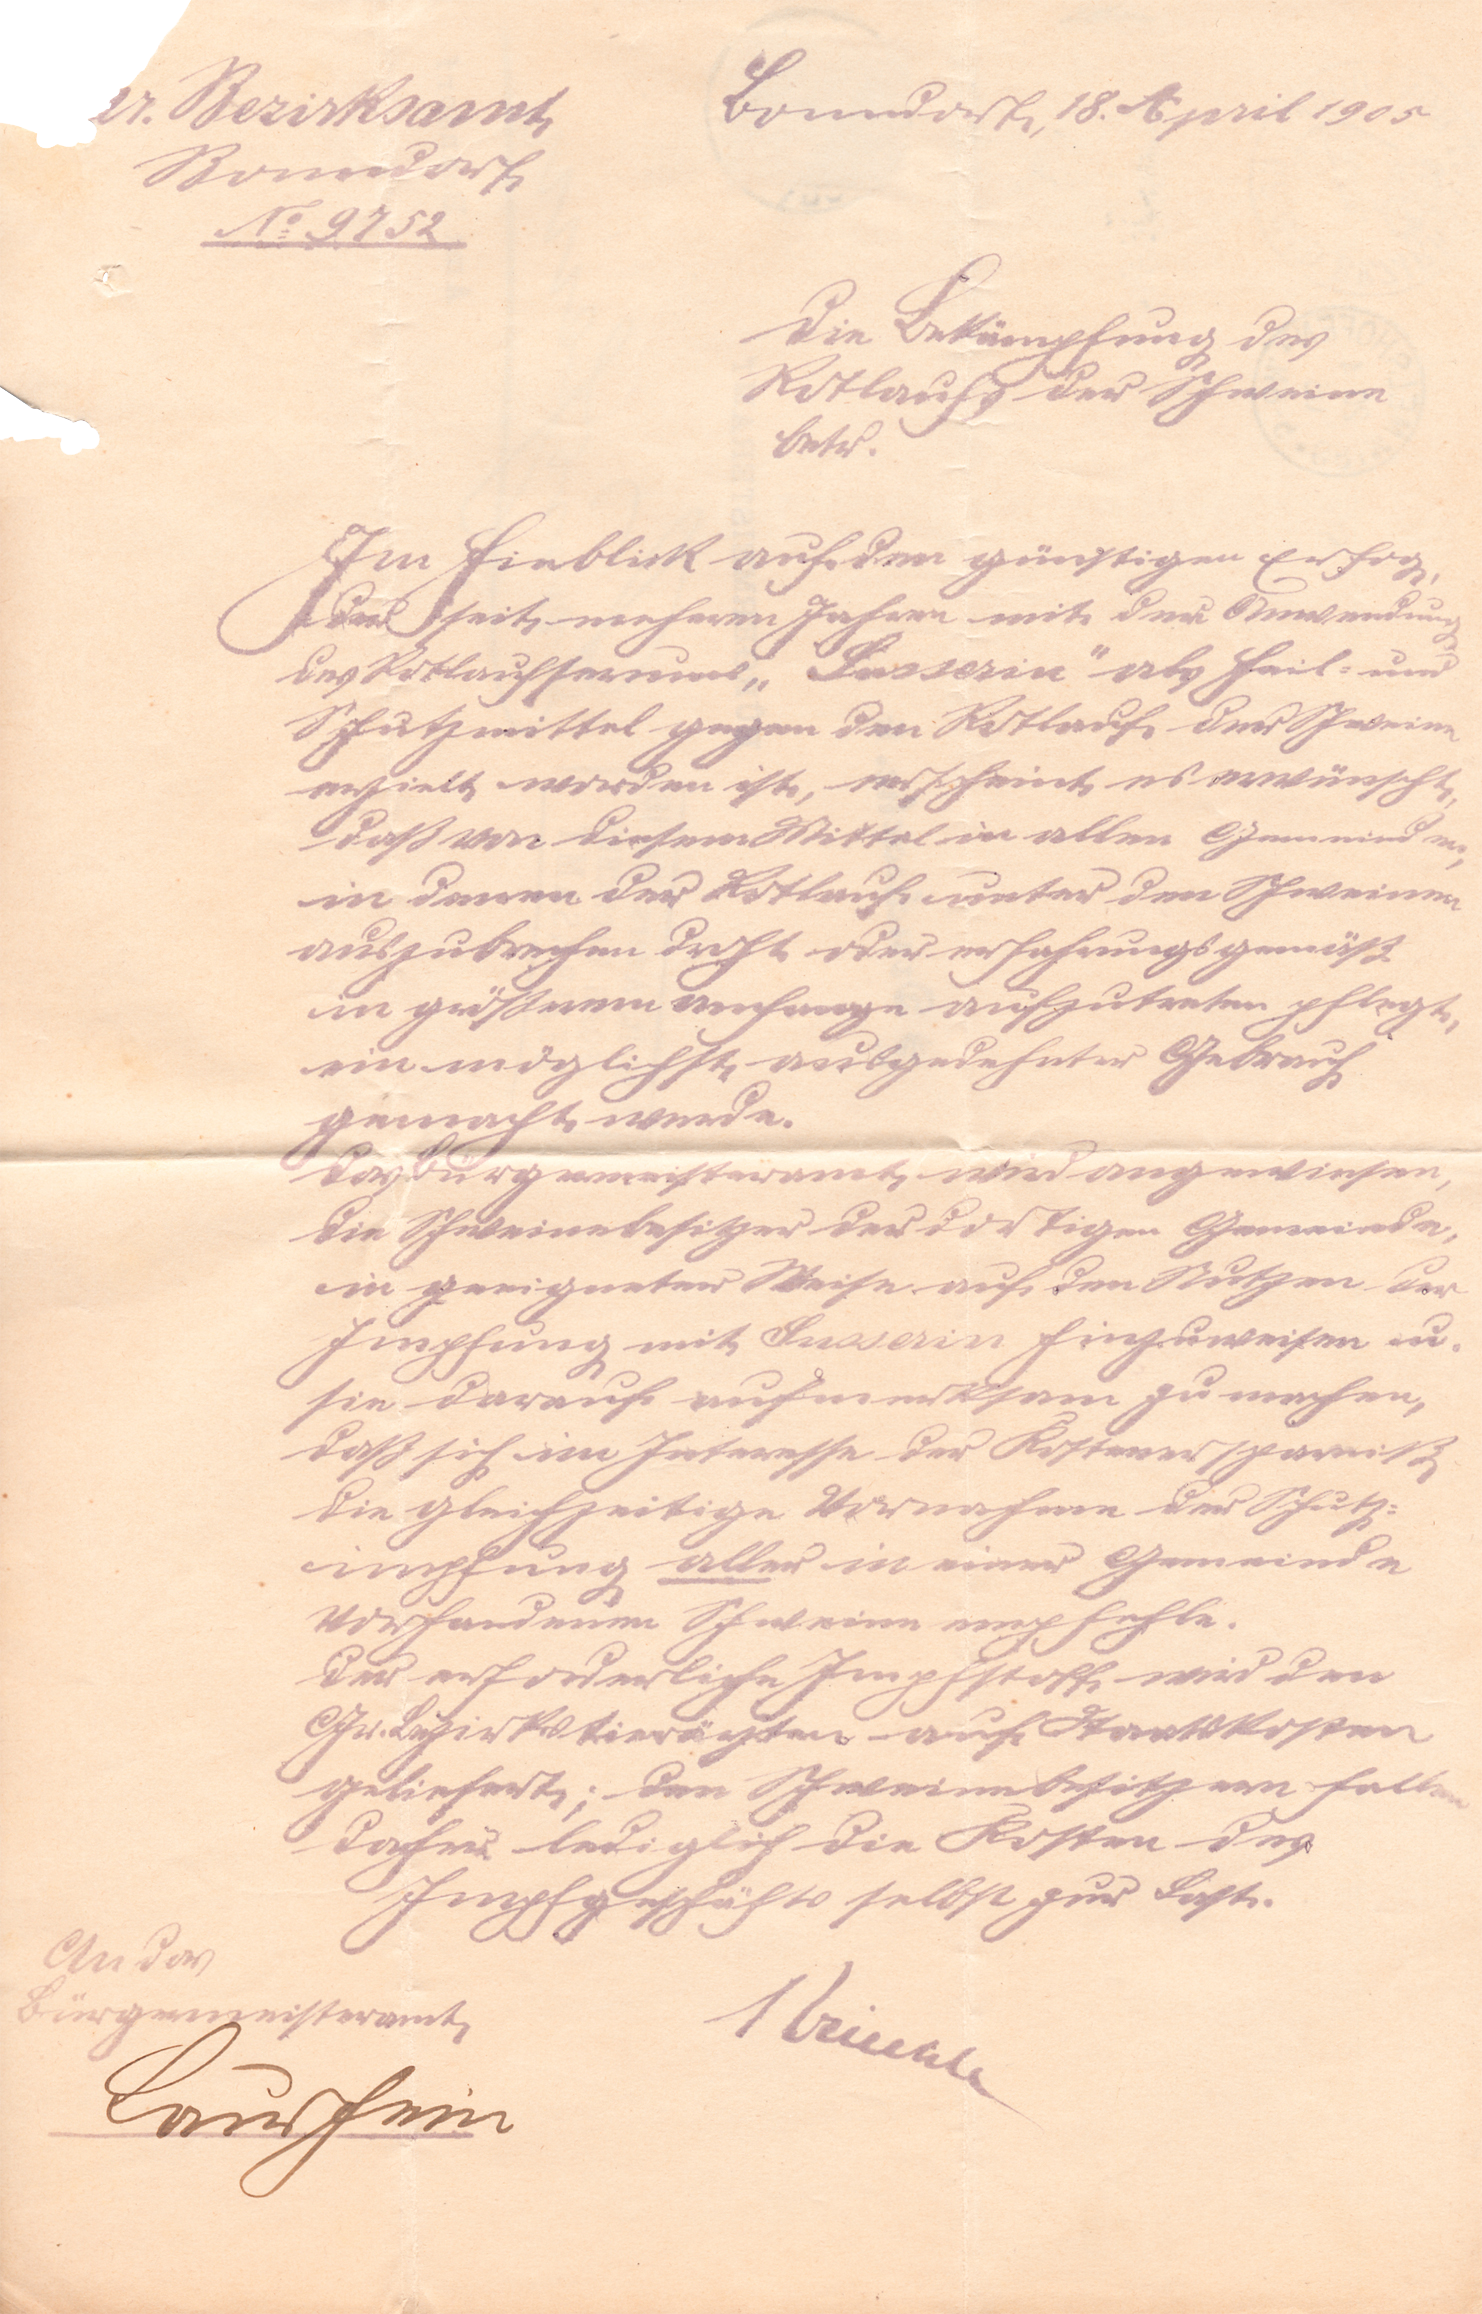 Gr. Bezirksamt
Bonndorf
No 9752
Bonndorf, 18. April 1905
Die Bekämpfung des
Rotlaufs der Schweine
betr.
Im Hinblick auf den günstigen Erfog,
der seit mehreren Jahren mit der Anwendung
des Rotlaufserums „Susserin" als Heil- und
Schutzmittel gegen den Rotlauf der Schweine
erzielt worden ist, erscheint es erwünscht,
daß von diesem Mittel in allen Gemeinden,
in denen der Rotlauf unter den Schweinen
auszubrechen droht oder erfahrungsgemäß
in größerem Umfange aufzutreten pflegt,
ein möglichst ausgedehnter Gebrauch
gemacht werde.
Das Bürgermeisteramt wird angewiesen,
die Schweinebesitzer der dortigen Gemeinde,
in geeigneter Weise auf den Nutzen der
Impfung mit Susserin hinzuweisen u.
sie darauf aufmerksam zu machen,
daß sich im Interesse der Kostenersparniß
die gleichzeitige Vornahme der Schutz-
impfung aller in einer Gemeinde
vorhandenen Schweine empfehle.
Der erforderliche Impfstoff wird den
Gr. Bezirkstierärzten auf Staatskosten
geliefert; den Schweinebesitzern fallen
daher lediglich die Kosten des
Impfgeschäfts selbst zur Last.
An das
Bürgermeisteramt
Lausheim